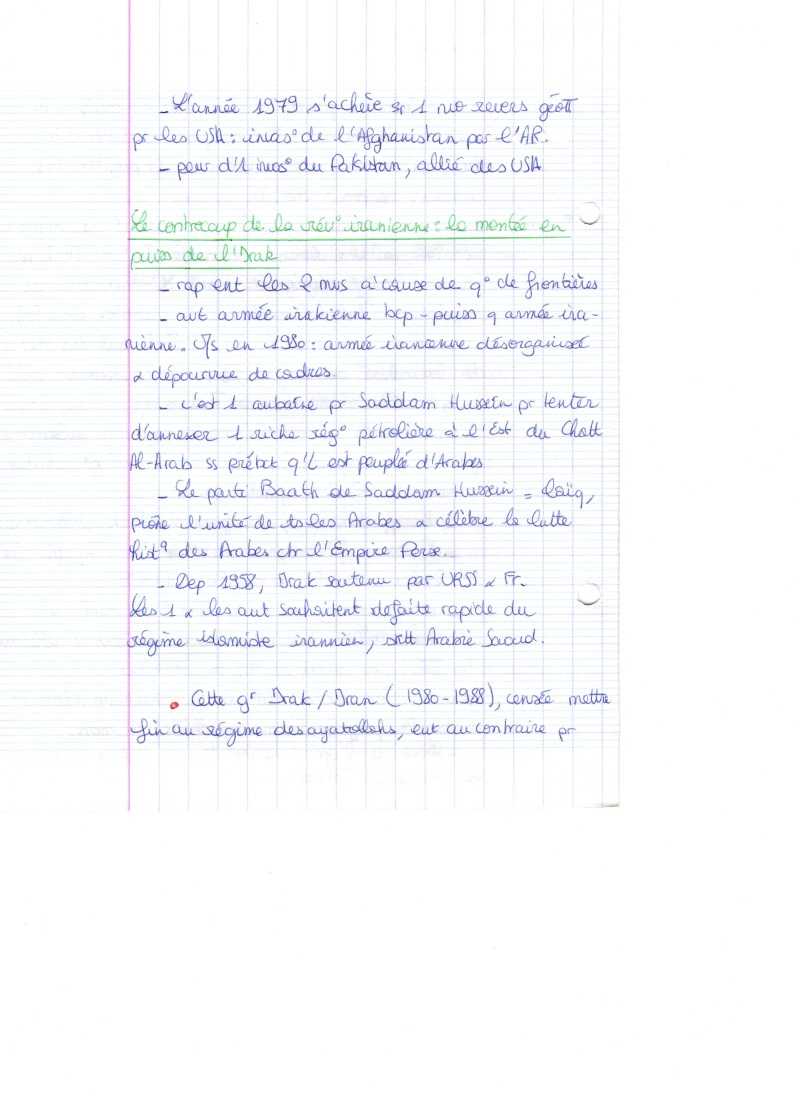 - L'année 1979 s'achève sr 1 nvo revers géott
pr les USA : invas° de l'Afghanistan par l'AR.
- peur d'1 invas° du Pakistan, allié des USA
Le contrecoup de la rév° iranienne : la montée en
puiss de l'Irak
- rap ent les 2 mvs à cause de q° de frontières
- avt armée irakienne bcp - puiss q armée ira-
nienne. C/s en 1980 : armée iranienne désorganisée
& dépourvue de cadres.
- c'est 1 aubaine pr Saddam Hussein pr tenter
d'annexer 1 riche rég° pétrolière à l'Est du Chatt
Al-Arab ss prétext q'L est peuplé d'Arabes
- Le parti Baath de Saddam Hussein = laïq,
prône l'unité de ts les Arabes & célèbre la lutte
histq des Arabes ctr l'Empire Perse.
- Dep 1958, Irak soutenu par URSS & Fr.
Les 1 & les aut souhaitent défaite rapide du
régime islamiste irannien, srtt Arabie Saoud.
• Cette gr Irak / Iran (1980-1988), censée mettre
fin au régime des ayatollahs, eut au contraire pr